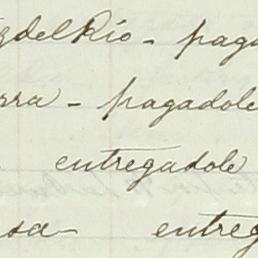 z del Río - paga
rra - pagadole
entregadole
sa - entreg